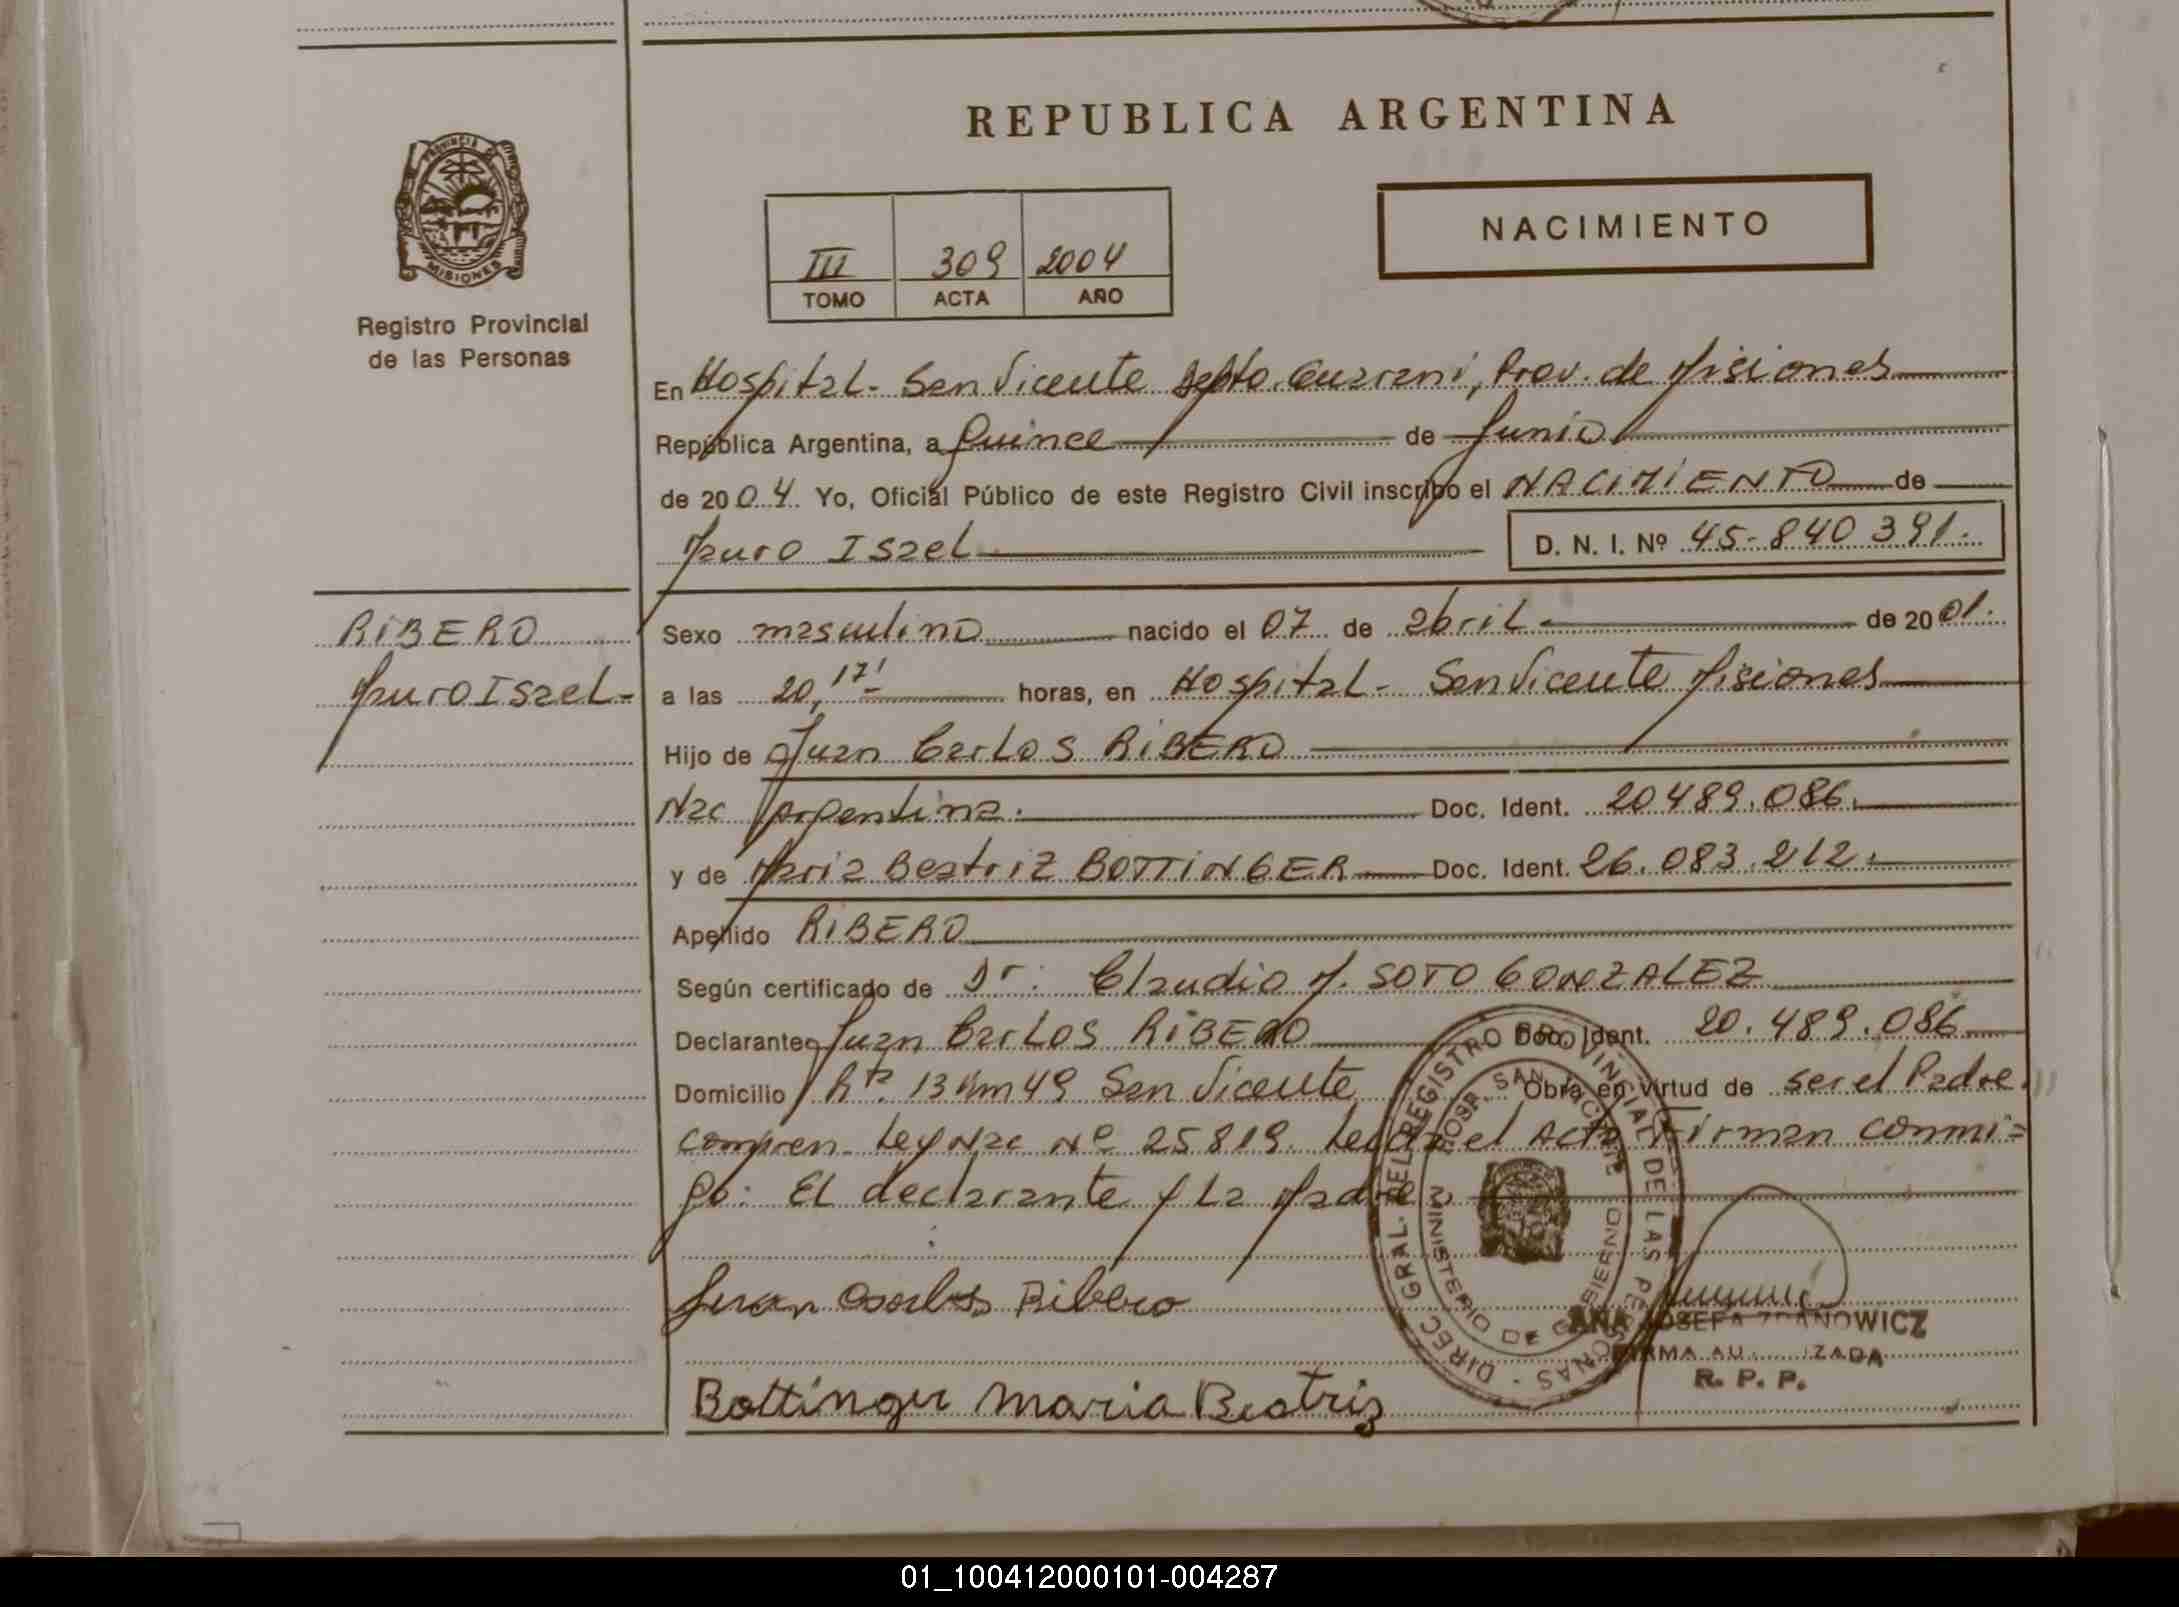 REPUBLICA ARGENTINA
PROVINCIA DE
MISIONES
Registro Provincial
de las Personas
NACIMIENTO
III 309 2004
TOMO ACTA AÑO
En Hospital- San Vicente Depto. Guarani, Prov. de Misiones
República Argentina, a Quince de Junio
de 2004. Yo, Oficial Público de este Registro Civil inscribo el NACIMIENTO de
Mauro Isael D. N. I. Nº 45-840 391.
RIBERO
Mauro Isael-
Sexo masculino nacido el 07 de abril de 2001.
a las 20,17' horas, en Hospital- San Vicente Misiones
Hijo de Juan Carlos RIBERO
Nac Argentina. Doc. Ident. 20489.086.
y de Maria Beatriz BOTTINGER Doc. Ident. 26.083.212.
Apellido RIBERO
Según certificado de Dr: Claudio M. SOTO GONZALEZ
Declarante Juan Carlos RIBERO Doc. Ident. 20.489.086
Domicilio Rta. 13 Km 49 San Vicente Obra en virtud de ser el Padre.
compren. Ley Nac Nº 25819. Leida el Acta Firman conmi=
go: El declarante y La Madre
Juan Carlos Ribero
Bottinger Maria Beatriz
DIREC. GRAL. DEL REGISTRO PROVINCIAL DE LAS PERSONAS
HOSP. SAN VICENTE
MINISTERIO DE GOBIERNO
ANA JOSEFA ZDANOWICZ
FIRMA AU IZADA
R. P. P.
01_100412000101-004287